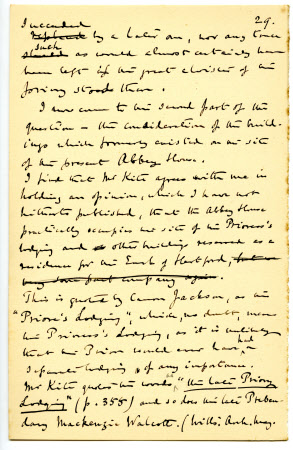 29.
succeeded
by a later one, nor any trace
such
as would almost certainly have
been left if the great cloister of the
priory stood there.
I now come to the second part of the
question – the consideration of the build-
ings which formerly existed on the site
of the present Abbey House.
I find that Mr Kite agrees with me in
holding an opinion, which I have not
hitherto published, that the Abbey House
practically occupies the site of the Prioress's
lodging and other buildings reserved as a
residence for the Earl of Hertford,
This is quoted by Canon Jackson, as the
"Prior's Lodging", which, no doubt, means
the Prioress's Lodging, as it is unlikely
that the Prior would ever have had
separate lodging of any importance.
Mr Kite quotes the words, "the late Priory
Lodging" (p. 355) and so does the late Preben-
dary Mackenzie Walcott. (Wilts. Arch. Mag.